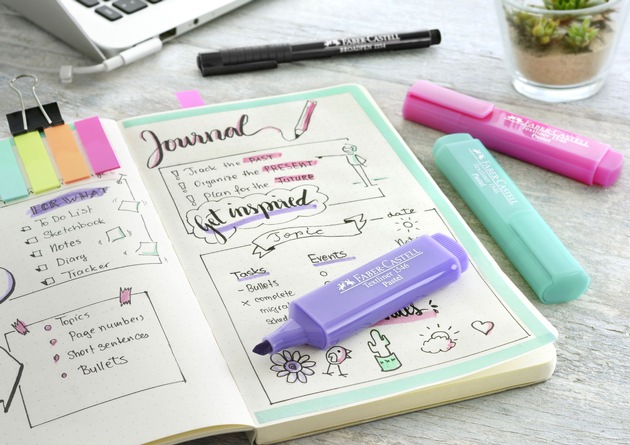 FOR WHAT
To Do List
Sketchbook
Notes
Diary
Tracker
Topics
Page numbers
Short sentences
Bullets
Journal
! Track the PAST
! Organize the PRESENT
! Plan for the FUTURE
Get inspired
Topic
date
Tasks
Events
No
Bullets
x complete
FABER-CASTELL
BROADPEN 1554
FABER-CASTELL
Textliner 1546
Pastel
FABER-CASTELL
Textliner 1546
Pastel
FABER-CASTELL
Textliner 1546
Pastel